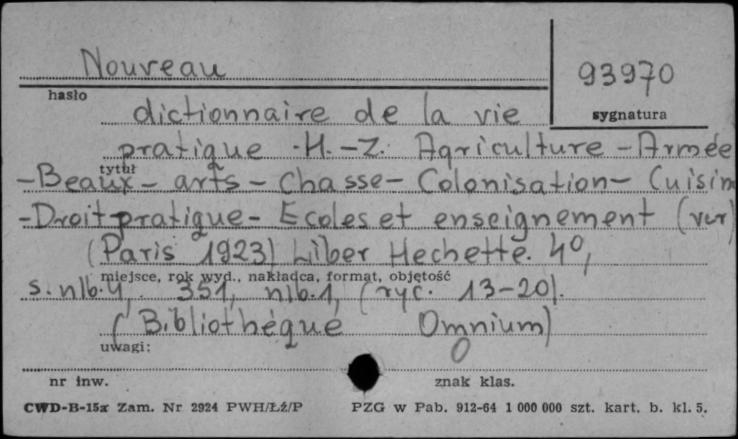 Nouveau
93970
hasło
sygnatura
dictionnaire de la vie
pratique H.-Z. Agriculture - Armée
tytuł
-Beaux-arts - Chasse - Colonisation - Cuisin
-Droit pratique - Ecoles et enseignement (ver)
(Paris 1923) Liber Hechette. 4⁰,
miejsce, rok wyd., nakładca, format, objętość
s. nlb. 4, 351, nlb. 1, (ryc. 13-20).
(Bibliothéque Omnium)
uwagi:
0
nr inw.
znak klas.
CWD-B-15x Zam. Nr 2924 PWH/Łź/P
PZG w Pab. 912-64 1 000 000 szt. kart. b. kl. 5.